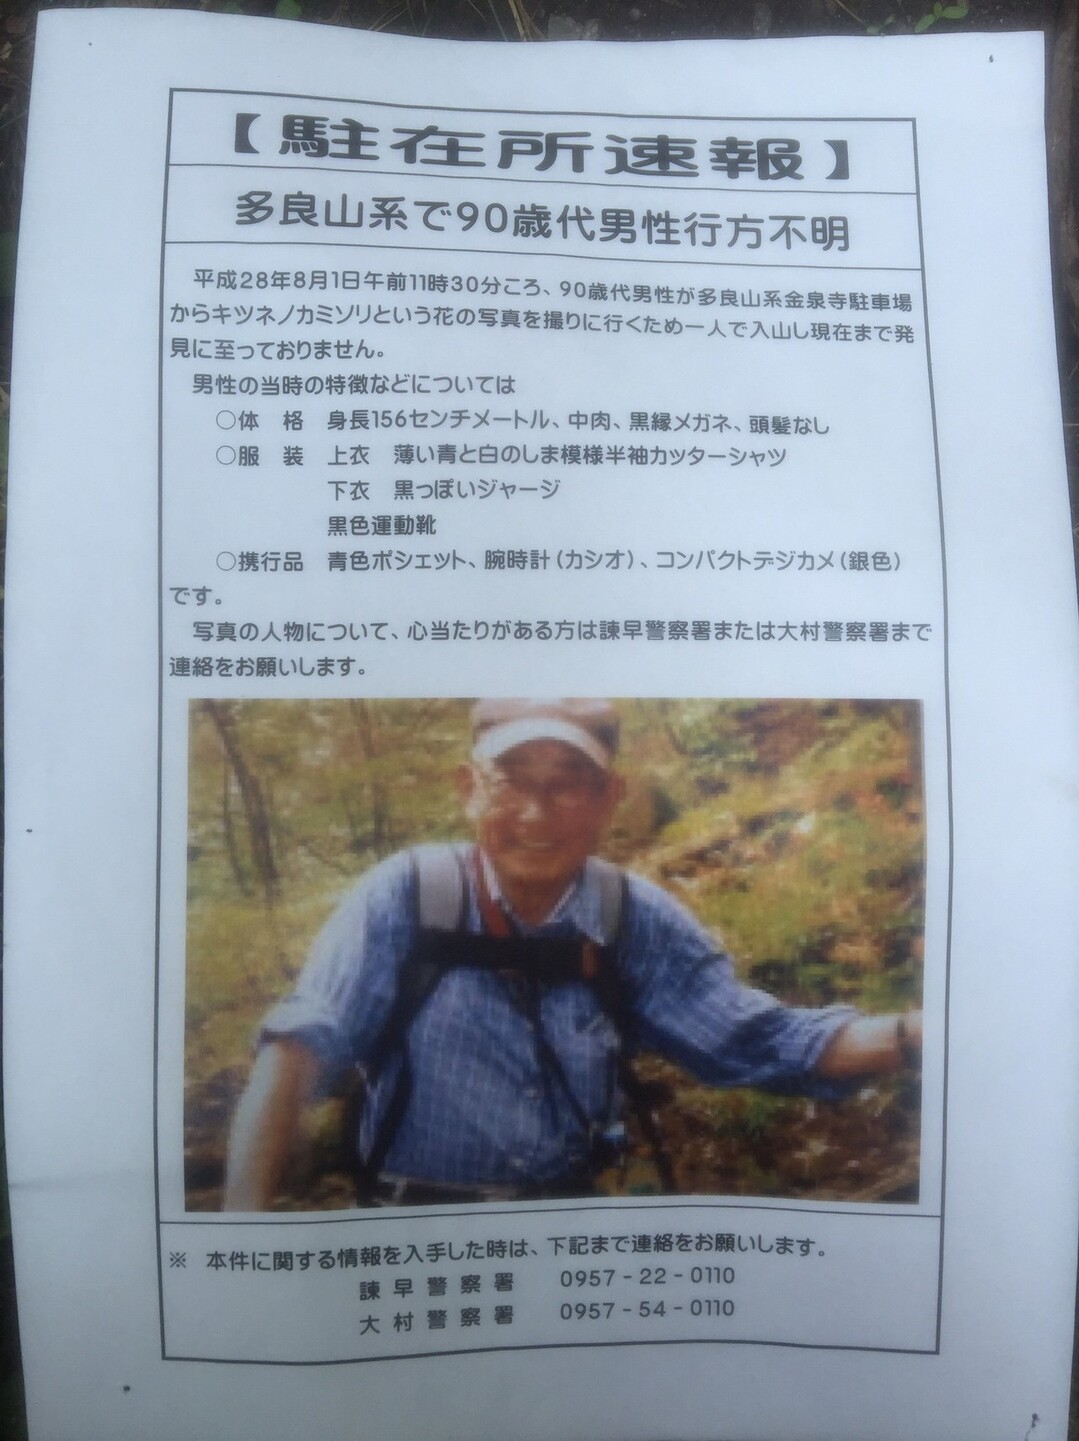 【駐在所速報】
多良山系で90歳代男性行方不明
平成28年8月1日午前11時30分ころ、90歳代男性が多良山系金泉寺駐車場
からキツネノカミソリという花の写真を撮りに行くため一人で入山し現在まで発
見に至っておりません。
男性の当時の特徴などについては
○体　格　身長156センチメートル、中肉、黒縁メガネ、頭髪なし
○服　装　上衣　薄い青と白のしま模様半袖カッターシャツ
下衣　黒っぽいジャージ
黒色運動靴
○携行品　青色ポシェット、腕時計（カシオ）、コンパクトデジカメ（銀色）
です。
写真の人物について、心当たりがある方は諫早警察署または大村警察署まで
連絡をお願いします。
※　本件に関する情報を入手した時は、下記まで連絡をお願いします。
諫早警察署　0957-22-0110
大村警察署　0957-54-0110